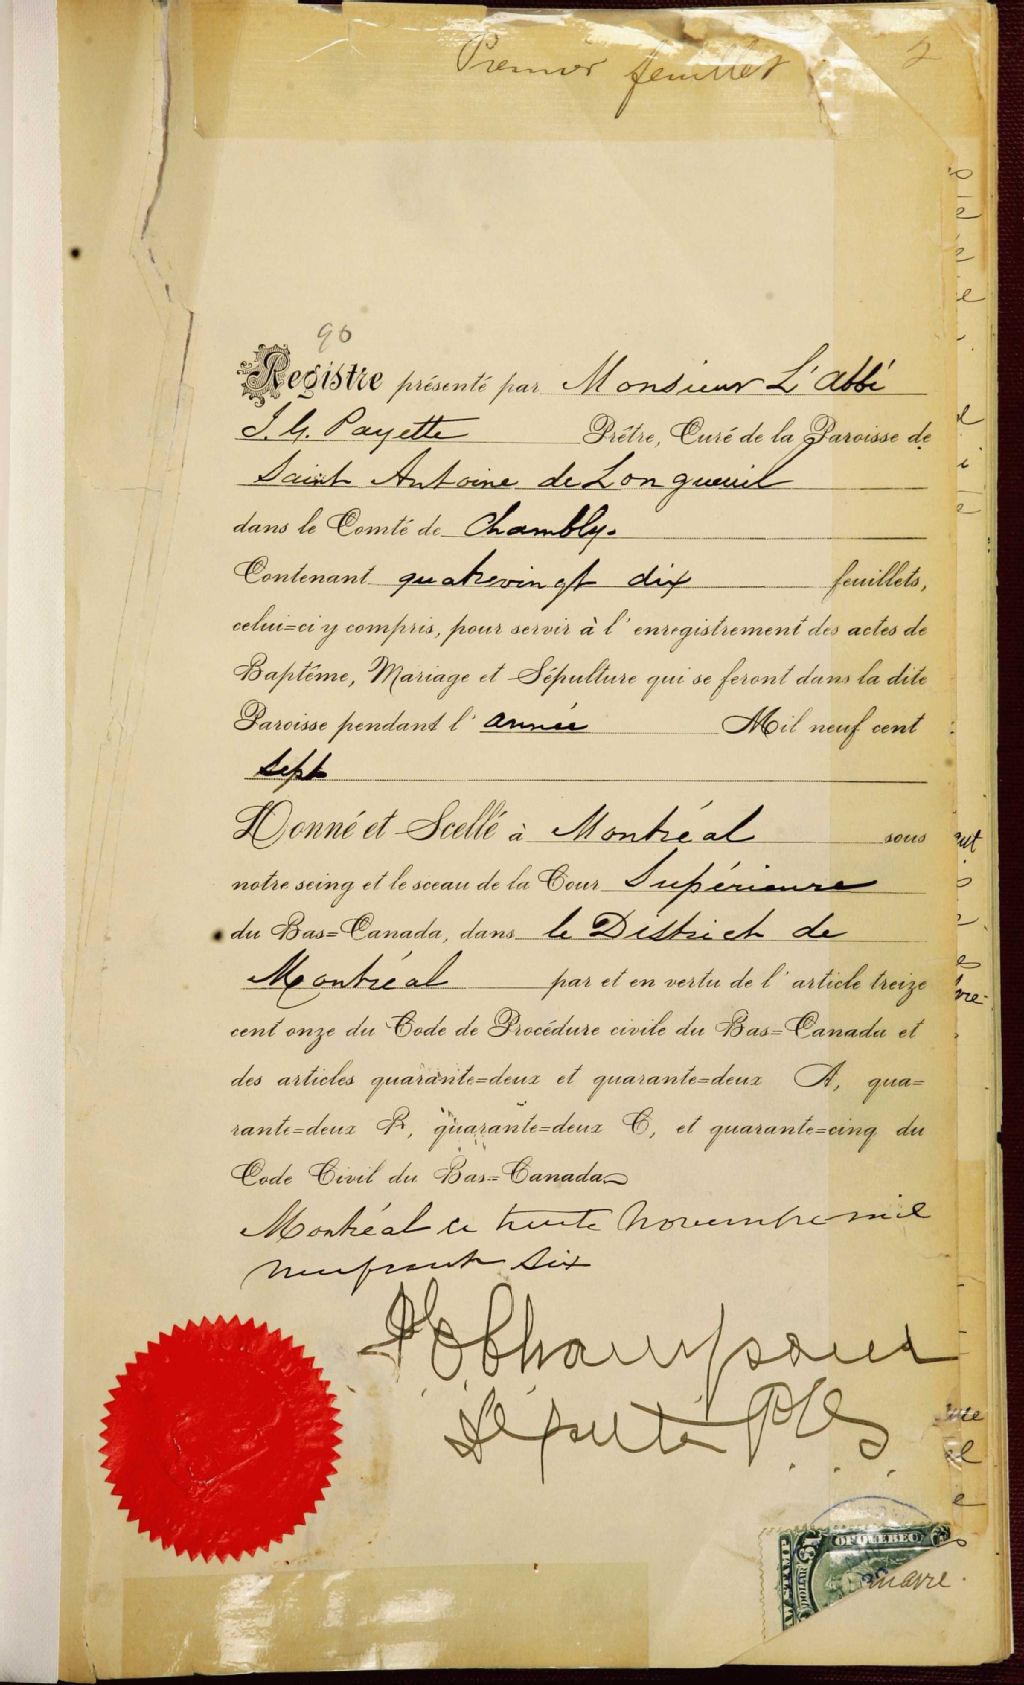 Premier feuillet 2
90
Registre présenté par Monsieur L'abbé
J. G. Payette Prêtre, Curé de la Paroisse de
Saint Antoine de Longueuil
dans le Comté de Chambly.
Contenant quatrevingt dix feuillets,
celui=ci y compris, pour servir à l'enregistrement des actes de
Baptême, Mariage et Sépulture qui se feront dans la dite
Paroisse pendant l'année Mil neuf cent
sept
Donné et Scellé à Montréal sous
notre seing et le sceau de la Cour Supérieure
du Bas=Canada, dans le District de
Montréal par et en vertu de l'article treize
cent onze du Code de Procédure civile du Bas=Canada et
des articles quarante=deux et quarante=deux A, qua=
rante=deux B, quarante=deux C, et quarante=cinq du
Code Civil du Bas=Canada
Montréal ce trente Novembre mil
neuf cent six
Député P. C. S.
OF QUEBEC
W STAMP
DOLLAR